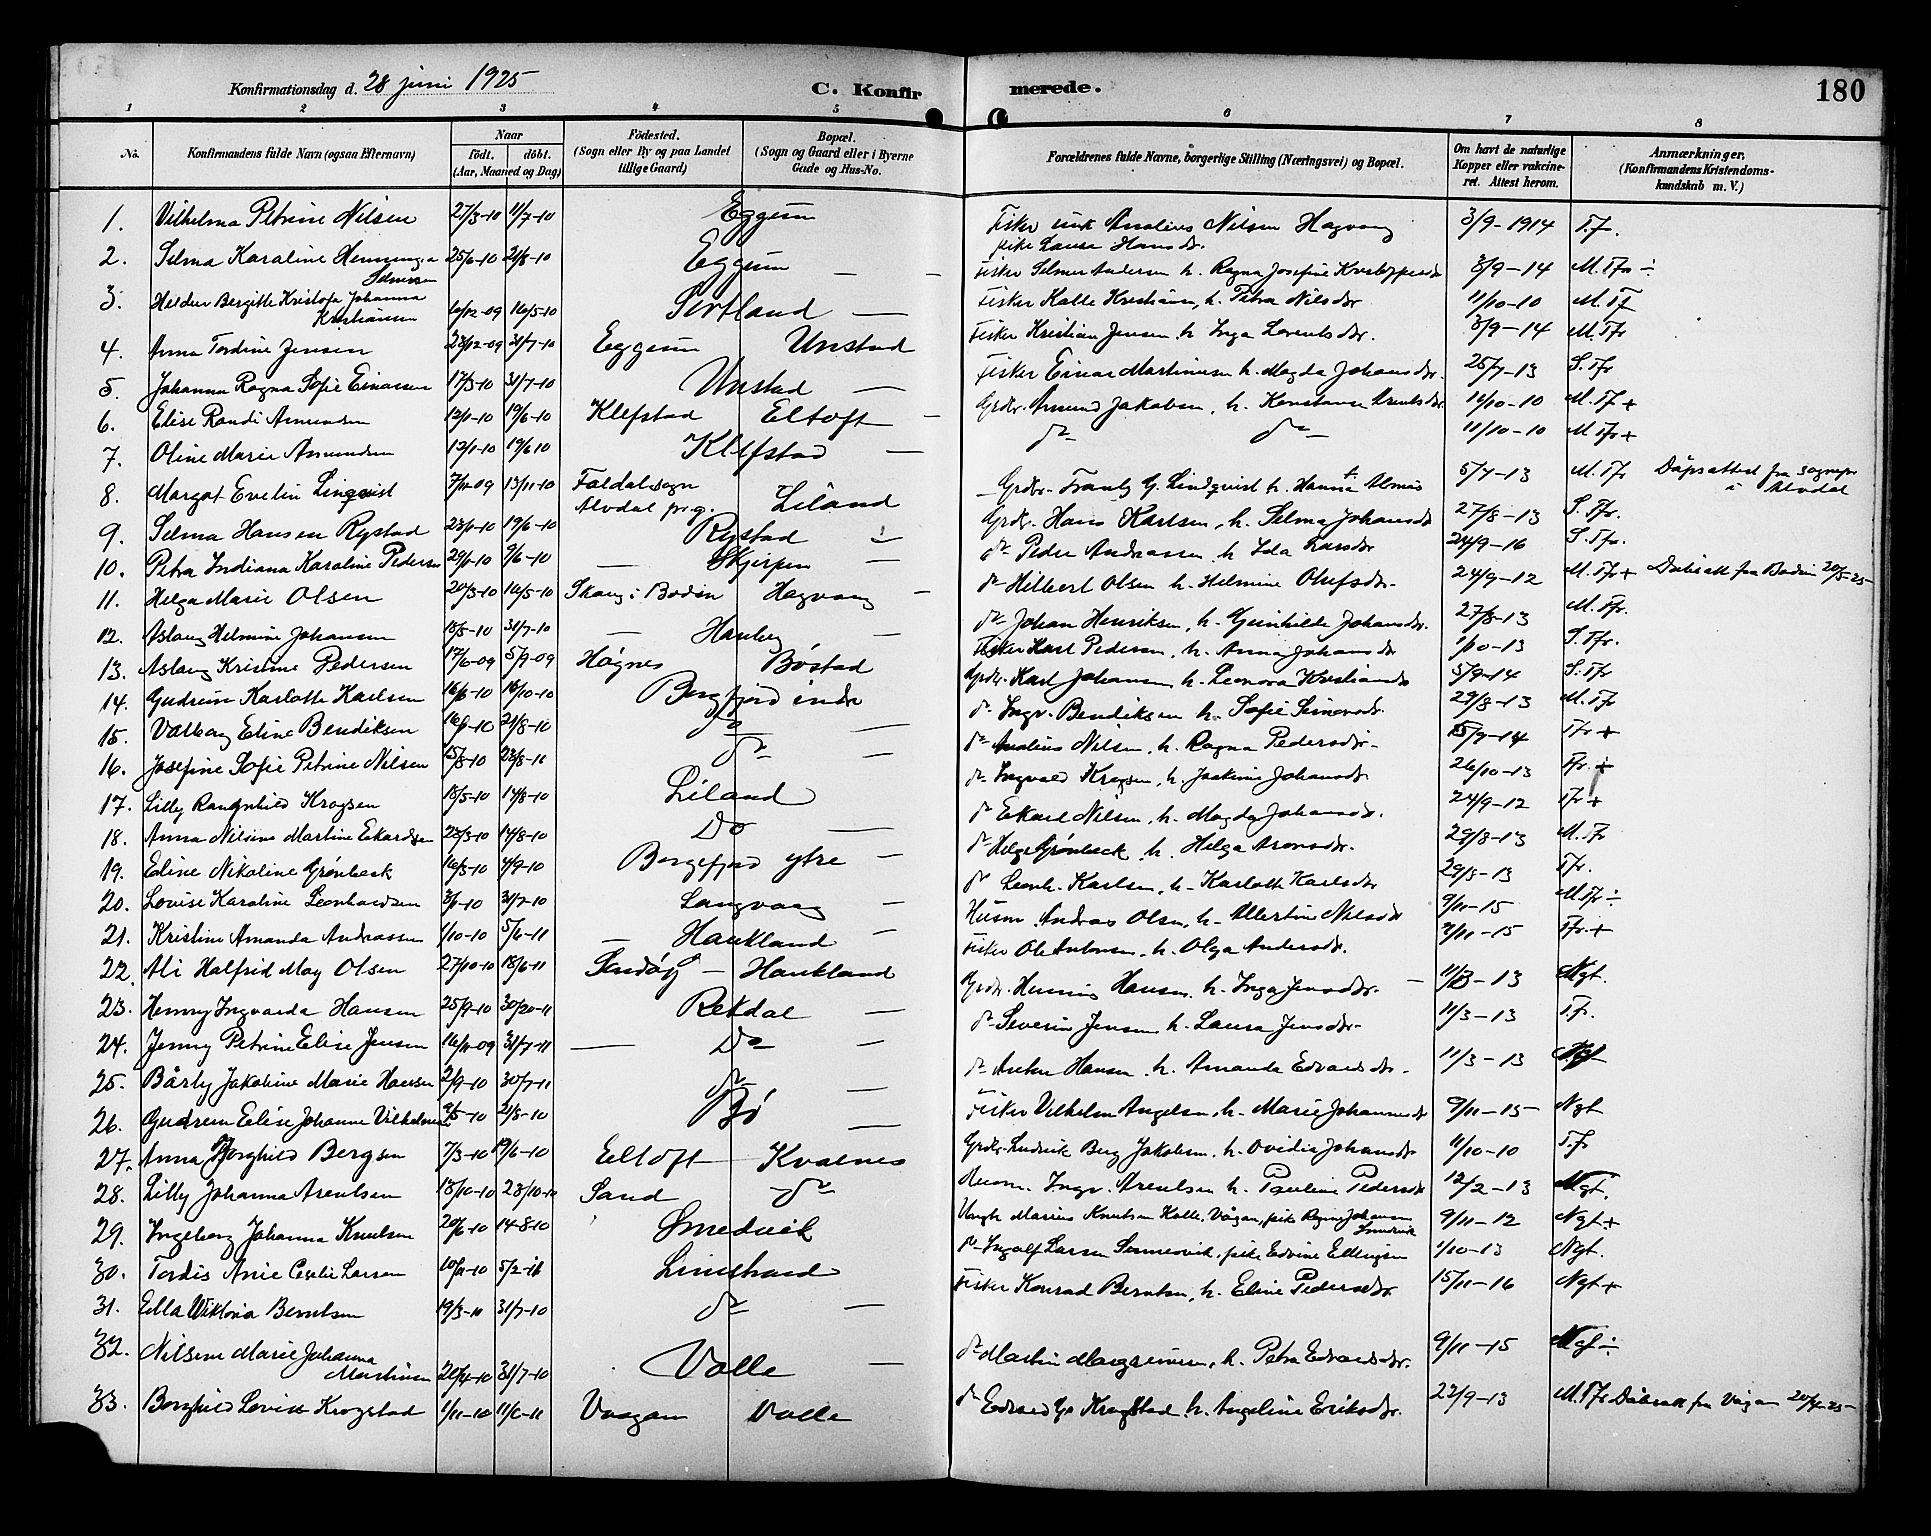 Konfirmationsdag d. 28 juni 1925
C. Konfirmerede.
180
1 2 3 4 5 6 7 8
No.
Konfirmandens fulde Navn (ogsaa Efternavn)
Naar
födt. döbt.
(Aar, Maaned og Dag)
Födested.
(Sogn eller By og paa Landet
tillige Gaard)
Bopæl.
(Sogn og Gaard eller i Byerne
Gade og Hus-No.
Forældrenes fulde Navne, borgerlige Stilling (Næringsvei) og Bopæl.
Om havt de naturlige
Kopper eller vakcine-
ret. Attest herom.
Anmærkninger.
(Konfirmandens Kristendoms-
kundskab m. V.)
1. Vilhelma Petrine Nilsen 27/3-10 11/7-10 Eggum Fisker unk Analius Nilsen Hagvaag 3/9-1914 T.f.
pike Laura Hansdr.
2. Selma Karaline Henninga 25/6-10 21/8-10 Eggum — — Fisker Selmer Andersen h. Ragna Josefine 3/9-14 M.Tfr ÷
Selmersen
3. Bergitte Kristofa Johanna Kristiansen 16/12-09 16/5-10 Sortland — Fisker Kalle Kristiansen, h. Petra Nilsdtr 11/10-10 M.Tf
4. Anna Tordine Jensen 23/12-09 31/7-10 Eggum Unstad Fisker Kristian Jensen h. Inga Lorentsdtr. 3/9-14 M.Tfr
5. Johanna Ragna Sofie Einarsen 17/3-10 31/7-10 Unstad — Fisker Einar Martinusen h. Magda Johansdtr. 25/7-13 S.Tfr
6. Elise Randi Amundsen 12/1-10 19/6-10 Klefstad Eltoft — Grdbr. Amund Jakobsen, h. Konstanse Arentsdtr 11/10-10 M.Tf +
7. Oline Marie Amundsen 12/1-10 19/6 10 Klefstad — do do 11/10-10 M.Tfr +
8. Margot Evelin Linqvist 7/11-09 13/11-10 Foldal sogn Alvdal prg. Liland Grdbr. Frants G. Lindqvist h. Hanna Almås 5/7-13 M.Tfr Dåpsattest fra sognepr i Alvdal
9. Selma Hansen Rystad 23/1-10 19/6-10 Rystad Grdbr. Hans Karlsen, h. Selma Johansdtr 27/8-13 S.Tfr.
10. Petra Indiana Karaline Pedersen 29/1-10 9/6-10 — Skjerpen — do Peder Andreassen h. Ida Larsdtr 24/9-16 S.Tfr.
11. Helga Marie Olsen 20/3-10 16/5-10 Skaug i Bodin Hagvaag — do Hilbert Olsen h. Helmine Olufsdtr. 24/9-12 M.Tfr + Dåbsatt fra Bodin 20/5-25
12. Aslaug Helmine Johansen 18/5-10 31/7-10 — Hauberg — do Johan Henriksen, h. Gunhilde Johansdtr. 27/8-13 M.Tfr.
13. Aslaug Kristine Pedersen 17/6-09 5/9-09 Høgnes Bøstad Fisker Karl Pedersen, h. Anna Johansdtr 1/10-13 S.Tfr.
14. Gudrun Karlotte Karlsen 16/6-10 16/10-10 Borgfjord indre Grdbr. Karl Johansen h. Leonora Kristiansdtr 3/9-14 S.Tfr
15. Valborg Eline Bendiksen 21/8-10 do — do Ingv. Bendiksen h. Sofie Simonsdtr. 29/3-13 M.Tfr
16. Josefine Sofie Petrine Nilsen 15/8-10 23/8-11 do — do Analius Nilsen, h. Ragna Pedersdtr. 15/9-14 Tfr +
17. Lilly Rangnhild Krogsen 18/5-10 14/8-10 Liland do Ingvald Krogsen, h. Joakime Johansdtr. 26/10-13 Tfr. +
18. Anna Nilsine Martine Eckardsen 22/3-10 14/8-10 Do — do Eckard Nilsen, h. Magda Johansdtr. 24/9-12 Tfr +
19. Edine Nikoline Grønbeck 16/3-10 4/9-10 Borgefjord ytre — do Helge Grønbeck h. Helga Aronsdtr. 29/3-13 M.Tfr
20. Lovise Karaline Leonhardsen 3/6-10 31/7-10 Langvaag — do Leonh. Karlsen, h. Karlotte Karlsdtr 29/3-13 Tfr.
21. Kristine Amanda Andreassen 1/10-10 5/6-11 — Haukland — Husm. Andreas Olsen, h. Albertine Nilsdtr 9/11-15 M.Tfr ÷
22. Ali Halfrid May Olsen 27/10-10 18/6-11 Sandøy — Haukland Fisker Ole Antonsen, h. Olga Andersdtr. 9/11-15 Tfr. +
23. Henny Ingvarda Hansen 25/9-10 30/20-11 Rekdal — Grdbr. Henning Hansen, h. Inga Jensdtr. — 11/3-13 Ngt.
24. Jenny Petrine Elise Jensen 16/11-09 31/7-11 — Do — do Severin Jensen h. Laura Jensdtr. 11/3-13 T.fr.
25. Bårly Jakobine Marie Hansen 2/9-10 30/7-11 do — do Anton Hansen, h. Amanda Edvardsdtr. 11/3-13 Ngt
26. Gudrun Elise Johanne Vilhelmsen 21/8-10 Bø — Fisker Vilhelm Angelsen, h. Marie Johannesdtr 9/11-15 Ngt
27. Anna Borghild Bergsen 7/3-10 19/6-10 Eltoft Kvalnes Grdbr. Ludvik Berg Jakobsen, h. Ovidia Johansdtr 11/10-10 T.fr
28. Lilly Johanna Arentsen 13/10-10 23/10-10 Sand do Husm. Ingv. Arentsen h. Pauline Pedersdtr 12/2-13 Ngt.
29. Ingeborg Johanna Knutsen 20/6-10 14-8-10 Smedvik Ungk. Marius Knutsen Kalle, Vågan, pike Regine Johansen Smedvik 9/11-12 Ngt +
30. Tordis Anie Cecilie Larsen 10/11-10 5/2-11 Limstrand do Ingolf Larsen Sennesvik, pike Edvine Ellingsen 1/10-13 Ngt.
31. Ella Viktoria Berntsen 19/3-10 31/7-10 do — Fisker Konrad Berntsen, h. Eline Pedersdtr. 15/11-16 Ngt +
32. Nilsine Marie Johanna Martinsen 20/4-10 31/7-10 Valle — do Martin Mangersnesen, h. Petra Edvardsdtr. 9/11-15 Ngt ÷
33. Borghild Lovise Krogstad 1/11-10 11/6-11 Vaagan Valle do Edvard Krogstad h. Angeline Eriksdtr. 22/9-13 M.Tfr Dåbsatt fra Vågan 20/4-25